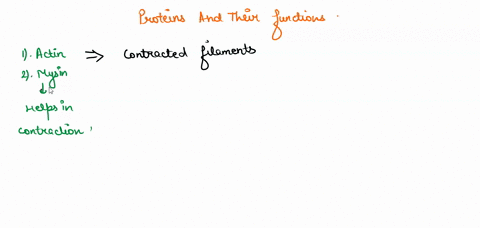 Proteins And Their functions
1). Actin ⇒ Contracted filaments
2). Mysin
↓
Helps in
contraction,